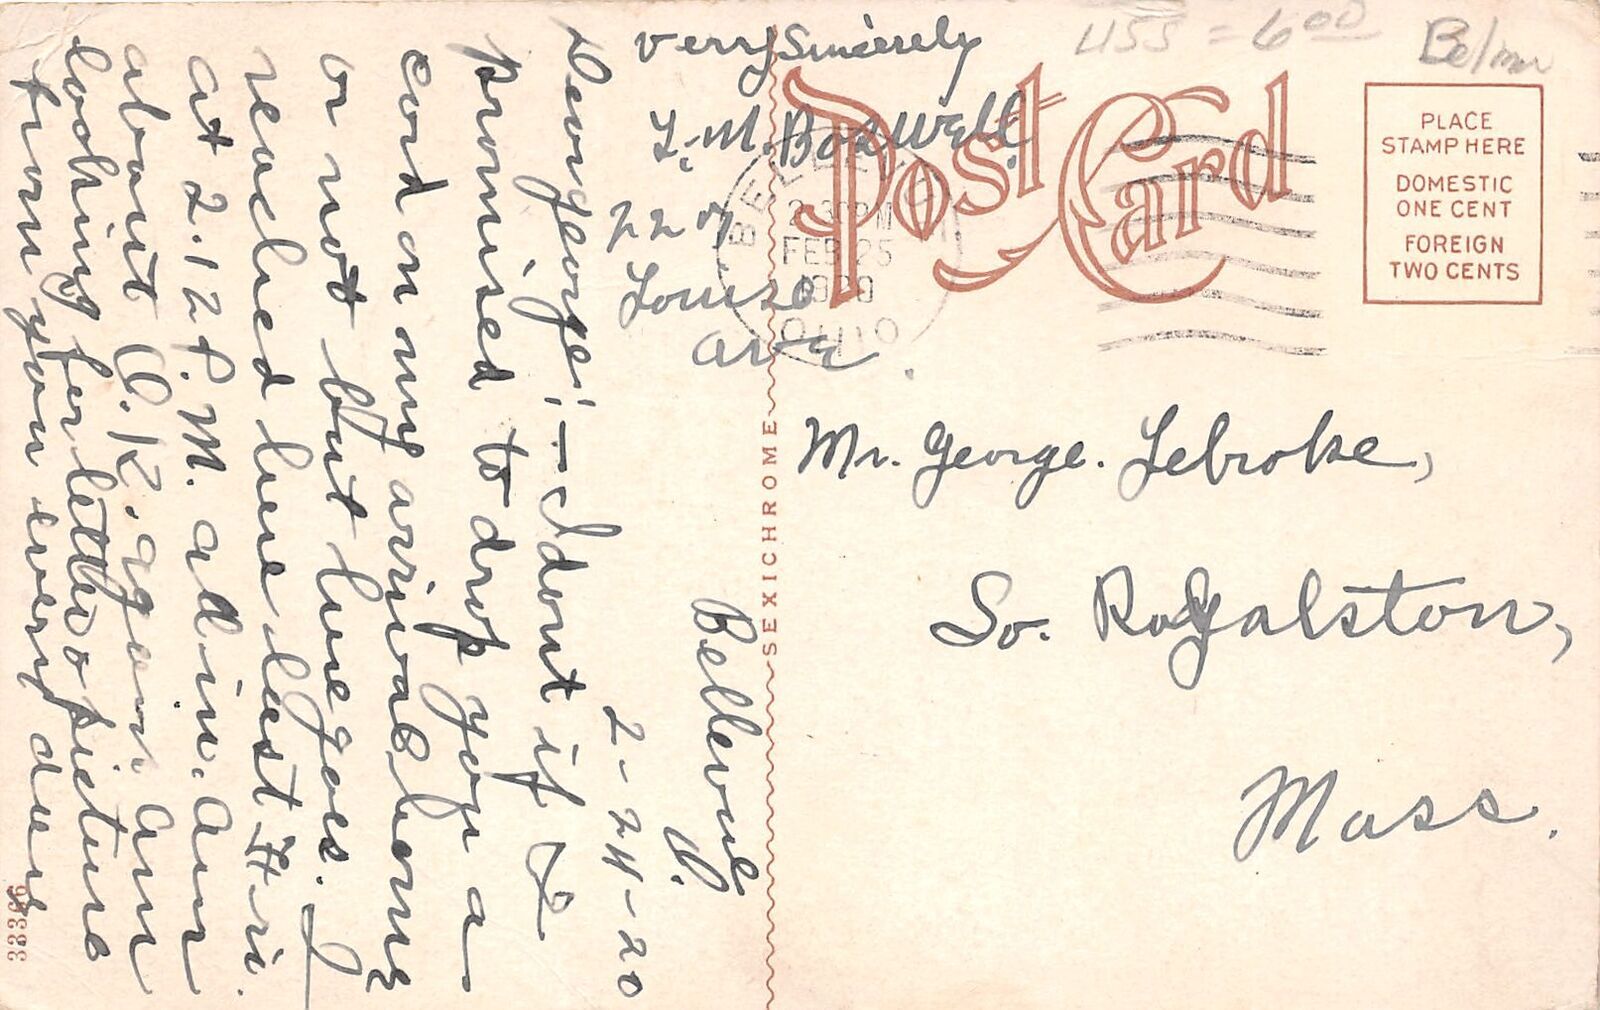 USS = 6.00
Bellevue
O.
2-24-20
Dear george! – I dont if I
promised to drop you a
card on my arrival home
or not but here goes. I
reached here last Fri.
at 2.12 P.M. and in. am
about O.K. again am
looking for letter & picture
from you every day
very Sincerely
L. M. Boswell
227
Louise
Ave
POST CARD
BELLEVUE
2 30 PM
FEB 25
1920
OHIO
PLACE
STAMP HERE
DOMESTIC
ONE CENT
FOREIGN
TWO CENTS
Mr. George. Lebroke,
So. Royalston,
Mass.
SEXICHROME